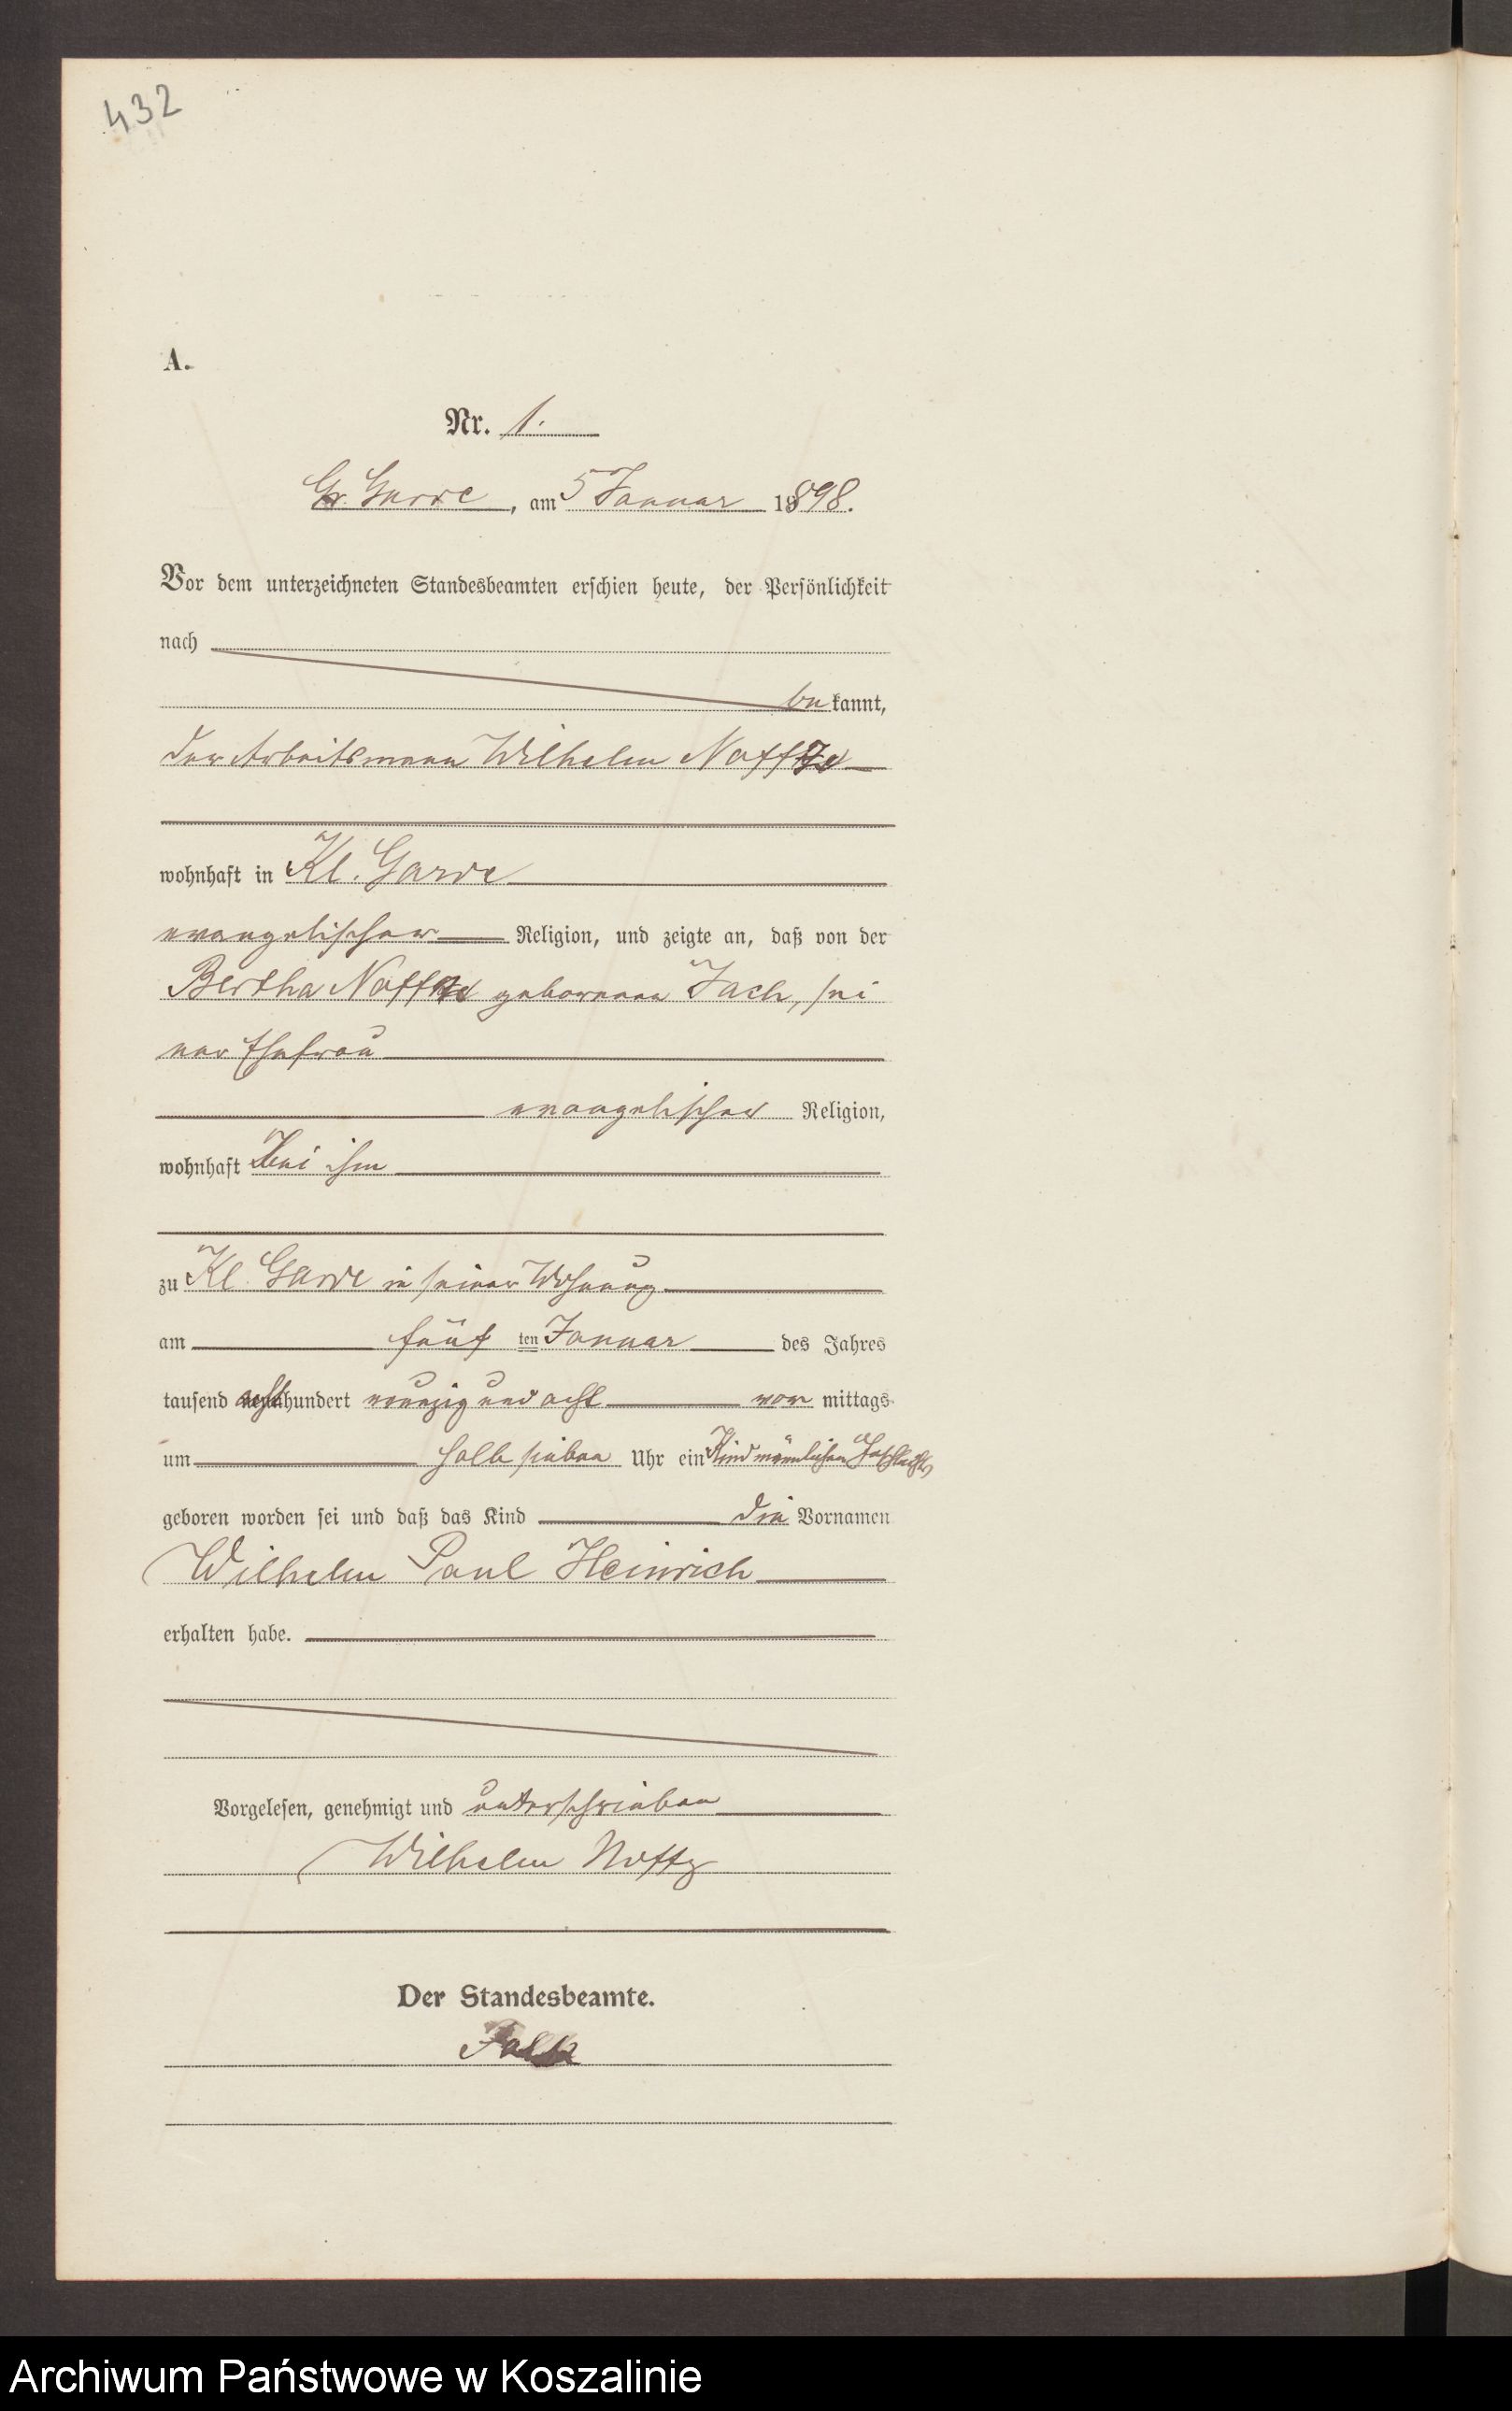 432
A.
Nr. 1.
Gr. Garde, am 5 Januar 1898.
Vor dem unterzeichneten Standesbeamten erschien heute, der Persönlichkeit
nach
be kannt,
der Arbeitsmann Wilhelm
wohnhaft in Kl. Garde
evangelischer Religion, und zeigte an, daß von der
Bertha geborenen Jach, sei
ner Ehefrau
evangelischer Religion,
wohnhaft bei ihm
zu Kl. Garde in seiner Wohnung
am fünf ten Januar des Jahres
tausend achthundert neunzig und acht vor mittags
um halb sieben Uhr ein Kind männlichen Geschlechts
geboren worden sei und daß das Kind die Vornamen
Wilhelm Paul Heinrich
erhalten habe.
Vorgelesen, genehmigt und unterschrieben
Wilhelm
Der Standesbeamte.
Archiwum Państwowe w Koszalinie